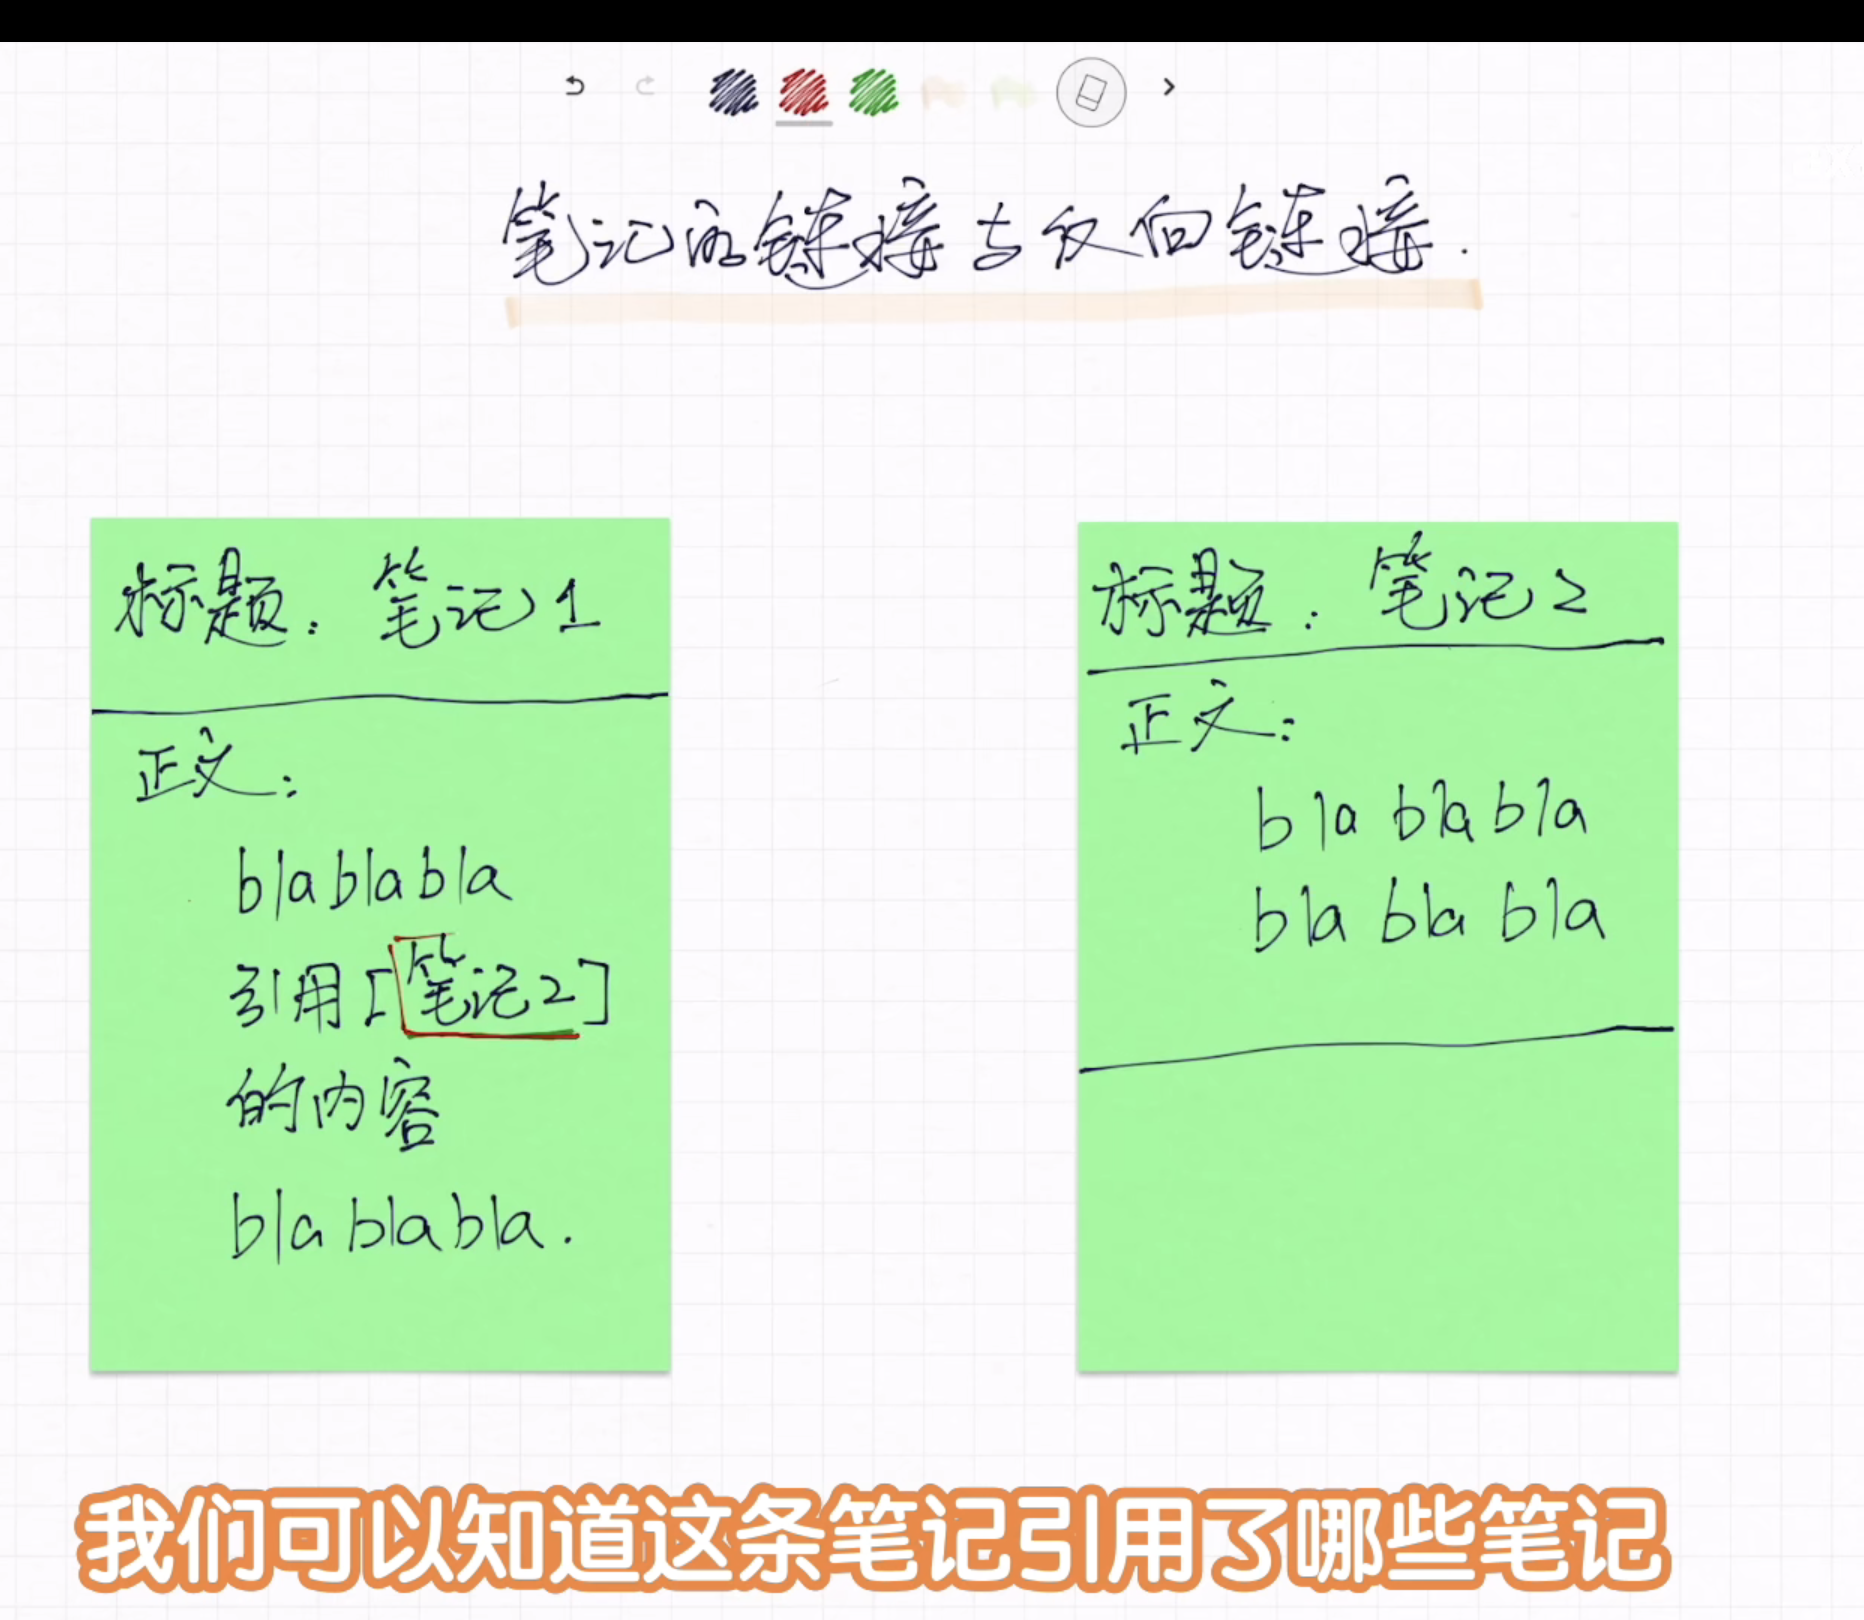 笔记的链接与反向链接.
标题: 笔记1
正文:
blablabla
引用[笔记2]
的内容
blablabla.
标题: 笔记2
正文:
bla bla bla
bla bla bla
我们可以知道这条笔记引用了哪些笔记